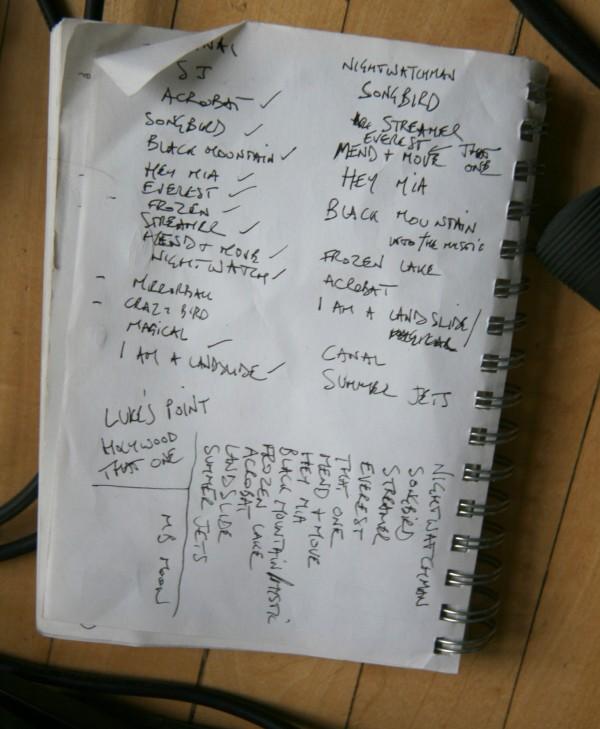 SJ
ACROBAT ✓
SONGBIRD ✓
BLACK MOUNTAIN ✓
HEY MIA ✓
EVEREST ✓
FROZEN ✓
STREAMER ✓
MEND + MOVE ✓
NIGHTWATCH ✓
- MIRRORBALL
- CRAZY BIRD
MAGICAL ✓
I AM A LANDSLIDE ✓
LUKE'S POINT
HOLYWOOD
THAT ONE
NIGHTWATCHMAN
SONGBIRD
STREAMER
EVEREST ← THAT ONE
MEND + MOVE
HEY MIA
BLACK MOUNTAIN
INTO THE MYSTIC
FROZEN LAKE
ACROBAT
I AM A LANDSLIDE/
CANAL
SUMMER JETS
NIGHTWATCHMAN
SONGBIRD
STREAMER
EVEREST
THAT ONE
MEND + MOVE
HEY MIA
BLACK MOUNTAIN/MYSTIC
FROZEN LAKE
ACROBAT
LANDSLIDE
SUMMER JETS
MB MOON